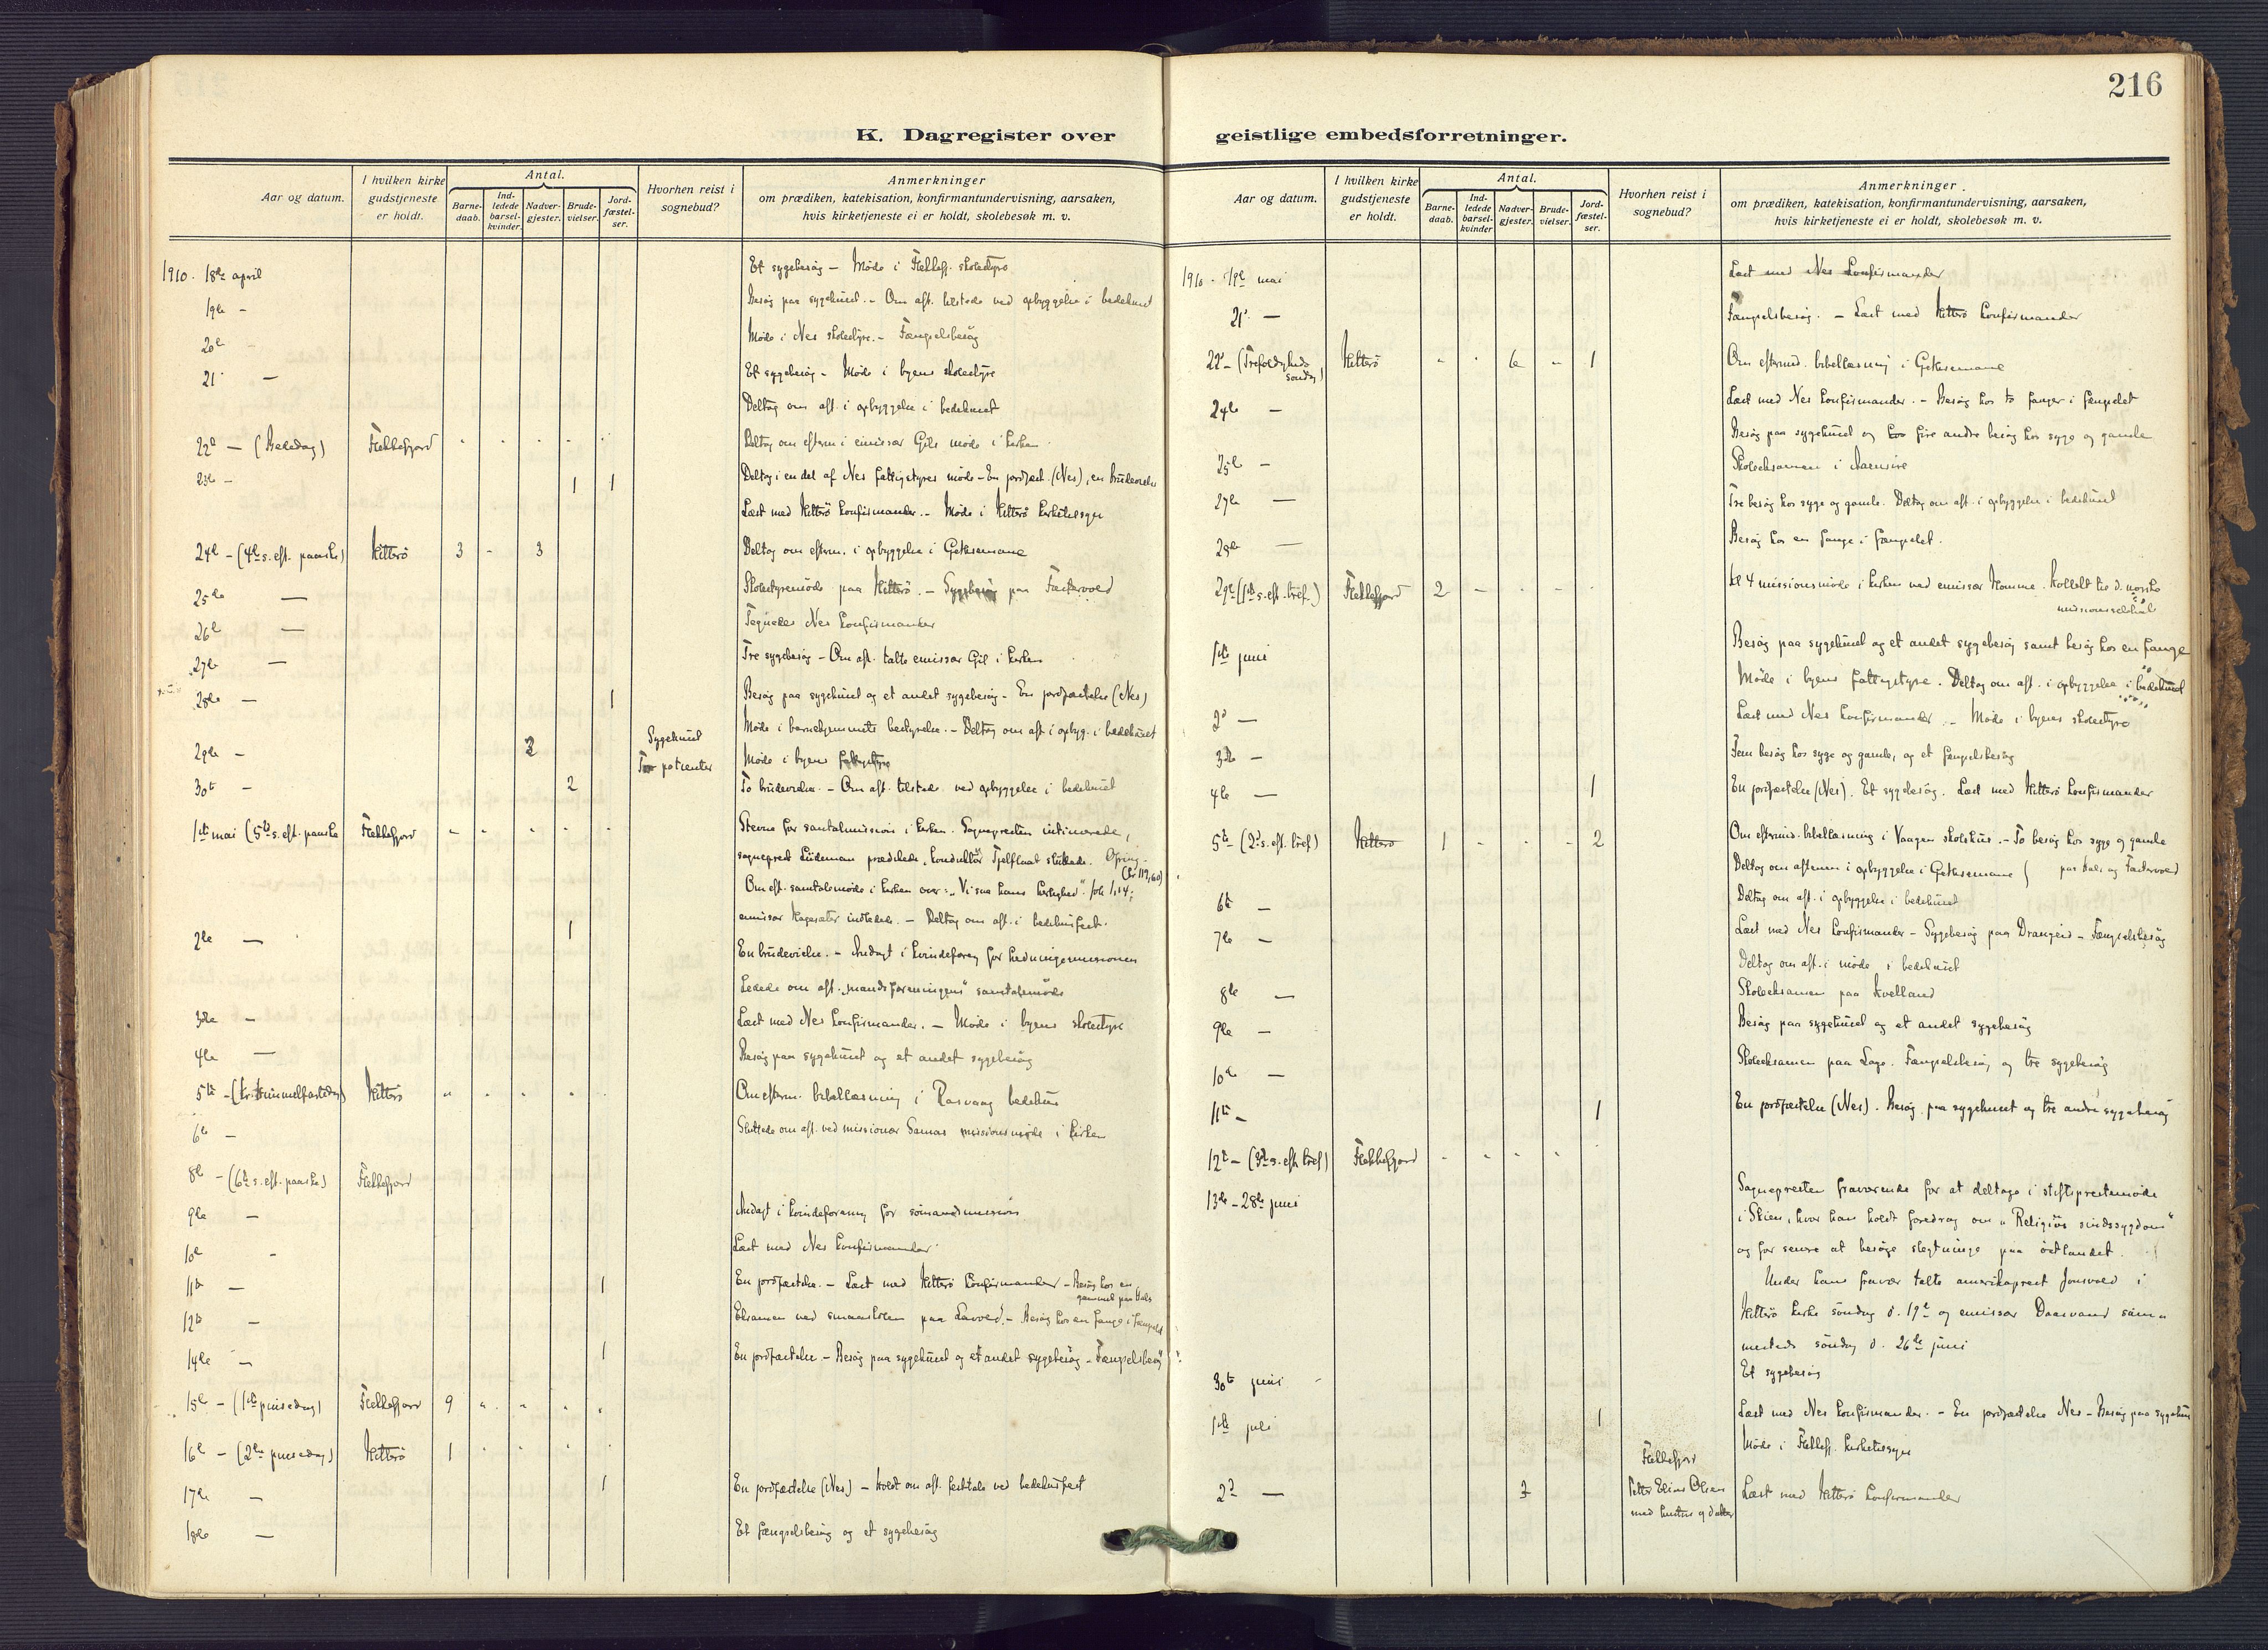 216
K. Dagregister over geistlige embedsforretninger.
Aar og datum.
I hvilken kirke gudstjeneste er holdt.
Antal.
Barne-daab.
Ind-ledede barsel-kvinder.
Nadver-gjester.
Brude-vielser.
Jord-fæstel-ser.
Hvorhen reist i sognebud?
Anmerkninger
om prædiken, katekisation, konfirmantundervisning, aarsaken,
hvis kirketjeneste ei er holdt, skolebesøk m. v.
1910. 18de april Et sygebesøg – Møde i Flekkefj. skolestyre
19de – Besøg paa sygehuset. – Om aft. tilstede ved opbyggelse i bedehuset
20de Møde i Nes skolestyre. – Fængselsbesøg
21 – Et sygebesøg – Møde i byens skolestyre
Deltog om aft. i opbyggelse i bedehuset
22d – (Bededag) Flekkefjord Deltog om efterm i emissær Gils møde i kirken
23de – 1 1 Deltog i en del af Nes fattigstyres møde – En jordfæst. (Nes), en brudevielse
Læst med Hitterö konfirmander. – Møde i Hitterö kirketilsyn
24de – (4de s. eft. paaske) Hitterö 3 – 3 Deltog om efterm. i opbyggelse i Gethsemane
25de – Skolestyremøde paa Hitterö. – Sygebesøg paa
26d – Tegnedes Nes konfirmander
27de – Tre sygebesøg – Om aft. talte emissær Gil i kirken
28de – 1 Besøg paa sygehuset og et andet sygebesøg – En jordfæstelse (Nes)
Møde i barnehjemmets bestyrelse. – Deltog om aft i opbyg. i bedehuset
29de – 2 Sygehuset To patienter Møde i byens fattigstyre
30te – 2 To brudevielser. – Om aft. tilstede ved opbyggelse i bedehuset
1ste mai (5te s. eft. paaske Flekkefjord Stevne for santalmission i kirken. Sognepresten intimerede,
sogneprest Lüdeman prædikede, konduktør Tjelflaat sluttede. Ofring
(kr 119,60)
Om eft. samtalemøde i kirken over: „Vi saa hans herlighed". Joh 1,14;
emissær indledede. – Deltog om aft. i bedehusfest.
2de – 1 En brudevielse. – Andagt i kvindeforening for hedningemissionen
Ledede om aft. „mandsforeningens" samtalemøde
3die – Læst med Nes konfirmander. – Møde i byens skolestyre
4de – Besøg paa sygehuset og et andet sygebesøg
5te – (Kr. Himmelfartsdag) Hitterö Om efterm. bibellæsning i Rasvaag bedehus
6te – Sluttede om aft. ved missionær missionsmøde i kirken
8de – (6te s. eft. paaske) Flekkefjord
9de – Andagt i kvindeforening for sømandsmission
10de – Læst med Nes konfirmander
11te – 1 En jordfæstelse. – Læst med Hitterö konfirmander – Besøg hos en
gammel paa
12te – Eksamen ved smaaskolen paa – Besøg hos en fange i fængslet
14de – 1 En jordfæstelse – Besøg paa sygehuset og et andet sygebesøg – Fængselsbesøg
15de – (1ste pinsedag) Flekkefjord 9
16de – (2den pinsedag) Hitterö 1
17de – 1 En jordfæstelse (Nes) – Holdt om aft. festtale ved bedehusfest
18de – Et fængselsbesøg og et sygebesøg
Aar og datum.
I hvilken kirke gudstjeneste er holdt.
Antal.
Barne-daab.
Ind-ledede barsel-kvinder
Nadver-gjester.
Brude-vielser.
Jord-fæstel-ser.
Hvorhen reist i sognebud?
Anmerkninger.
om prædiken, katekisation, konfirmantundervisning, aarsaken,
hvis kirketjeneste ei er holdt, skolebesøk m. v.
1910 – mai Læst med Nes konfirmander
21 – Fængselsbesøg. – Læst med Hitterö konfirmander
22 – (Trefoldigheds söndag) Hitterö 6 – 1 Om efterm. bibellæsning i Gethsemane
24de – Læst med Nes konfirmander. – Besøg hos to fanger i fængslet
Besøg paa sygehuset og hos fire andre besøg hos syge og gamle
25de – Skoleeksamen i
27de – Tre besøg hos syge og gamle. Deltog om aft. i opbyggelse i bedehuset
28de – Besøg hos en fange i fængslet.
29de (1ste s. eft. tref.) Flekkefjord 2 Kl 4 missionsmøde i kirken ved emissær Homme. Kollekt til d. norske
missionsselskab
1ste juni Besøg paa sygehuset og et andet sygebesøg samt besøg hos en fange
Møde i byens fattigstyre. Deltog om aft. i opbyggelse i bedehuset
2d – Læst med Nes konfirmander. – Møde i byens skolestyre
3die – Fem besøg hos syge og gamle, og et fængselsbesøg
4de – 1 En jordfæstelse (Nes). Et sygebesøg. Læst med Hitterö konfirmander
5te – (2d s. eft. tref) Hitterö 1 2 Om efterm. bibellæsning i Vaagen skolehus. – To besøg hos syge og gamle
Deltog om aftenen i opbyggelse i Gethsemane
6te – Deltog om aft. i opbyggelse i bedehuset
7de – Læst med Nes konfirmander – Sygebesøg paa Drangeid – Fængselsbesøg
Deltog om aft. i møde i bedehuset
8de – Skoleeksamen paa Kvelland
9de – Besøg paa sygehuset og et andet sygebesøg
10de – Skoleeksamen paa Loge. Fængselsbesøg og tre sygebesøg
11te – 1 En jordfæstelse (Nes). Besøg paa sygehuset og tre andre sygebesøg
12te – (3die s. eft. tref) Flekkefjord
13de – 28de juni Sognepresten fraværende for at deltage i stiftsprestemøde
i Skien, hvor han holdt foredrag om „Religiøs sindssygdom"
og for senere at besøge slegtninge paa østlandet.
Under hans fravær talte amerikaprest i
Hitterö kirke söndag d. 19de og emissær Daasvand sam-
mesteds söndag d. 26de juni
30te juni – Et sygebesøg
1ste juli 1 Læst med Nes konfirmander. – En jordfæstelse Nes – Besøg paa sygehus
Møde i Flekkefj. kirketilsyn
2d – 3 Flekkefjord Petter Elias Olsen med hustru og datter Læst med Hitterö konfirmander